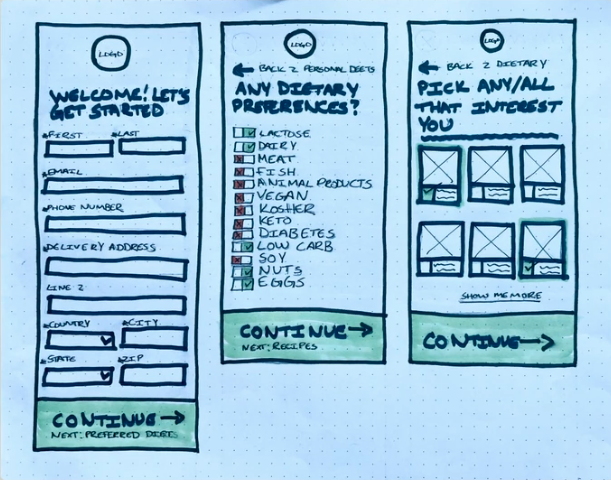 LOGO
WELCOME! LET'S
GET STARTED
*FIRST
*LAST
*EMAIL
*PHONE NUMBER
*DELIVERY ADDRESS
LINE 2
*COUNTRY
*CITY
*STATE
*ZIP
CONTINUE →
NEXT: PREFERRED DIETS
LOGO
← BACK 2 PERSONAL DEETS
ANY DIETARY
PREFERENCES?
LACTOSE
DAIRY
MEAT
FISH
ANIMAL PRODUCTS
VEGAN
KOSHER
KETO
DIABETES
LOW CARB
SOY
NUTS
EGGS
CONTINUE →
NEXT: RECIPES
LOGO
← BACK 2 DIETARY
PICK ANY/ALL
THAT INTEREST
YOU
SHOW ME MORE
CONTINUE →